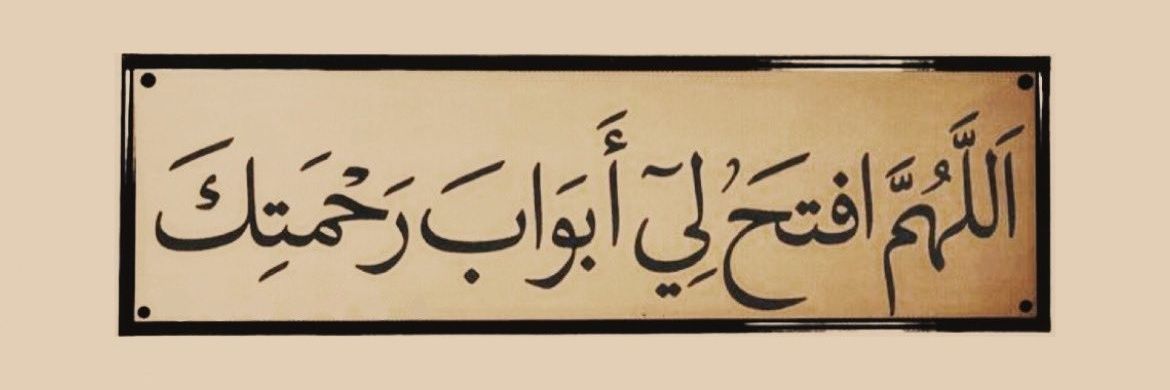 اَللَّهُمَّ افتَحْ لِي أَبْوَابَ رَحْمَتِكَ